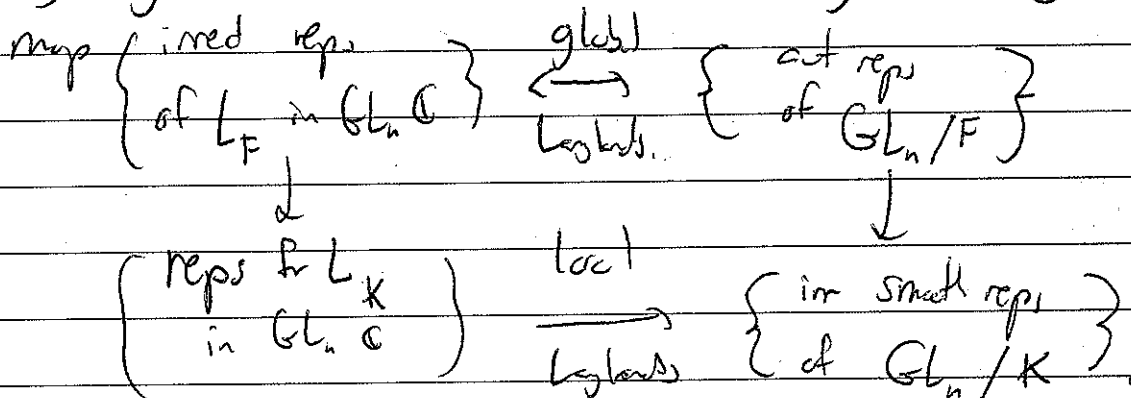 map { irred reps of L_F in GL_n ℂ } ⟷ global Langlands. { aut reps of GL_n/F }
↓ ↓
{ reps for L_K in GL_n ℂ } ⟶ local Langlands { irr smooth reps of GL_n/K }